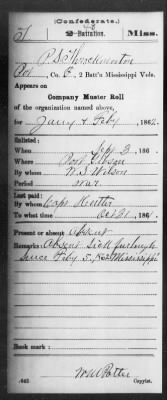 (Confederate.)
S 48
2 Battalion. Miss.
P. S.
Pvt, Co. C, 2 Batt'n Mississippi Vols.
Appears on
Company Muster Roll
of the organization named above,
for Jany & Feby, 186
Enlisted:
When 186
Where Port Gibson
By whom W. S. Wilson
Period War
Last paid:
By whom Capt Hutter
To what time Oct 31, 186
Present or absent Absent
Remarks: Absent Sick furlough
since Feby 5, 1862 Mississippi
Book mark:
(642)
Copyist.